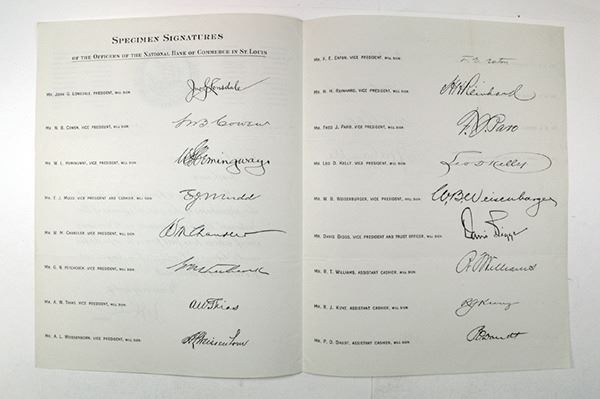 Specimen Signatures
of the Officers of the National Bank of Commerce in St. Louis
Mr. John G. Lonsdale, president, will sign Jno G Lonsdale
Mr. N. B. Cowen, vice president, will sign
Mr. W. L. Hemingway, vice president, will sign W L Hemingway
Mr. E. J. Mudd, vice president and cashier, will sign E J Mudd
Mr. W. M. Chandler, vice president, will sign W M Chandler
Mr. G. N. Hitchcock, vice president, will sign
Mr. A. W. Thias, vice president, will sign A W Thias
Mr. A. L. Weissenborn, vice president, will sign A L Weissenborn
Mr. F. E. Eaton, vice president, will sign
Mr. H. H. Reinhard, vice president, will sign H H Reinhard
Mr. Theo J. Paro, vice president, will sign T. J. Paro
Mr. Leo D. Kelly, vice president, will sign Leo D Kelly
Mr. W. B. Weisenburger, vice president, will sign W. B. Weisenburger
Mr. Davis Biggs, vice president and trust officer, will sign Davis Biggs
Mr. R. T. Williams, assistant cashier, will sign R T Williams
Mr. R. J. assistant cashier, will sign
Mr. P. D. assistant cashier, will sign